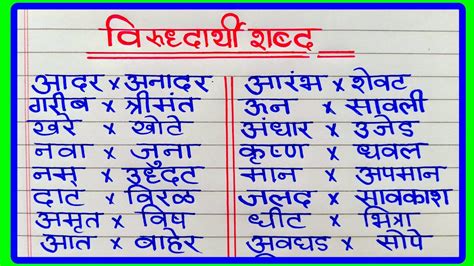 विरुध्दार्थी शब्द
आदर x अनादर
गरीब x श्रीमंत
खरे x खोटे
नवा x जुना
नम्र x उध्दट
दाट x विरळ
अमृत x विष
आत x बाहेर
आरंभ x शेवट
ऊन x सावली
अंधार x उजेड
कृष्ण x धवल
मान x अपमान
जलद x सावकाश
धीट x भित्रा
अवघड x सोपे